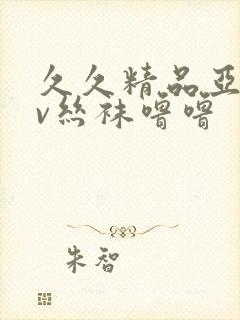 久久精品亞
v丝袜噜噜
朱智